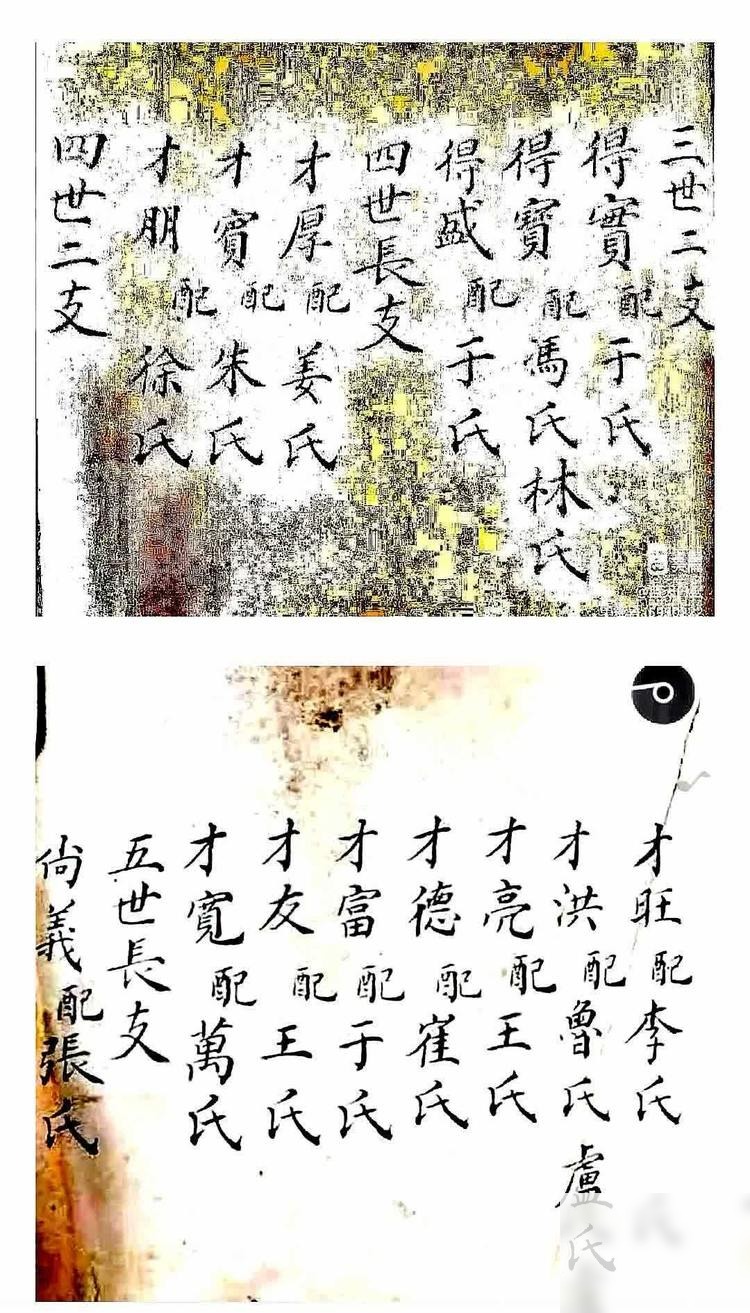 三世二支
得實配于氏
得寶配馮氏林氏
得盛配于氏
四世長支
才厚配姜氏
才賓配朱氏
才朋配徐氏
四世二支
才旺配李氏
才洪配魯氏盧氏
才亮配王氏
才德配崔氏
才富配于氏
才友配王氏
才寬配萬氏
五世長支
尙義配張氏